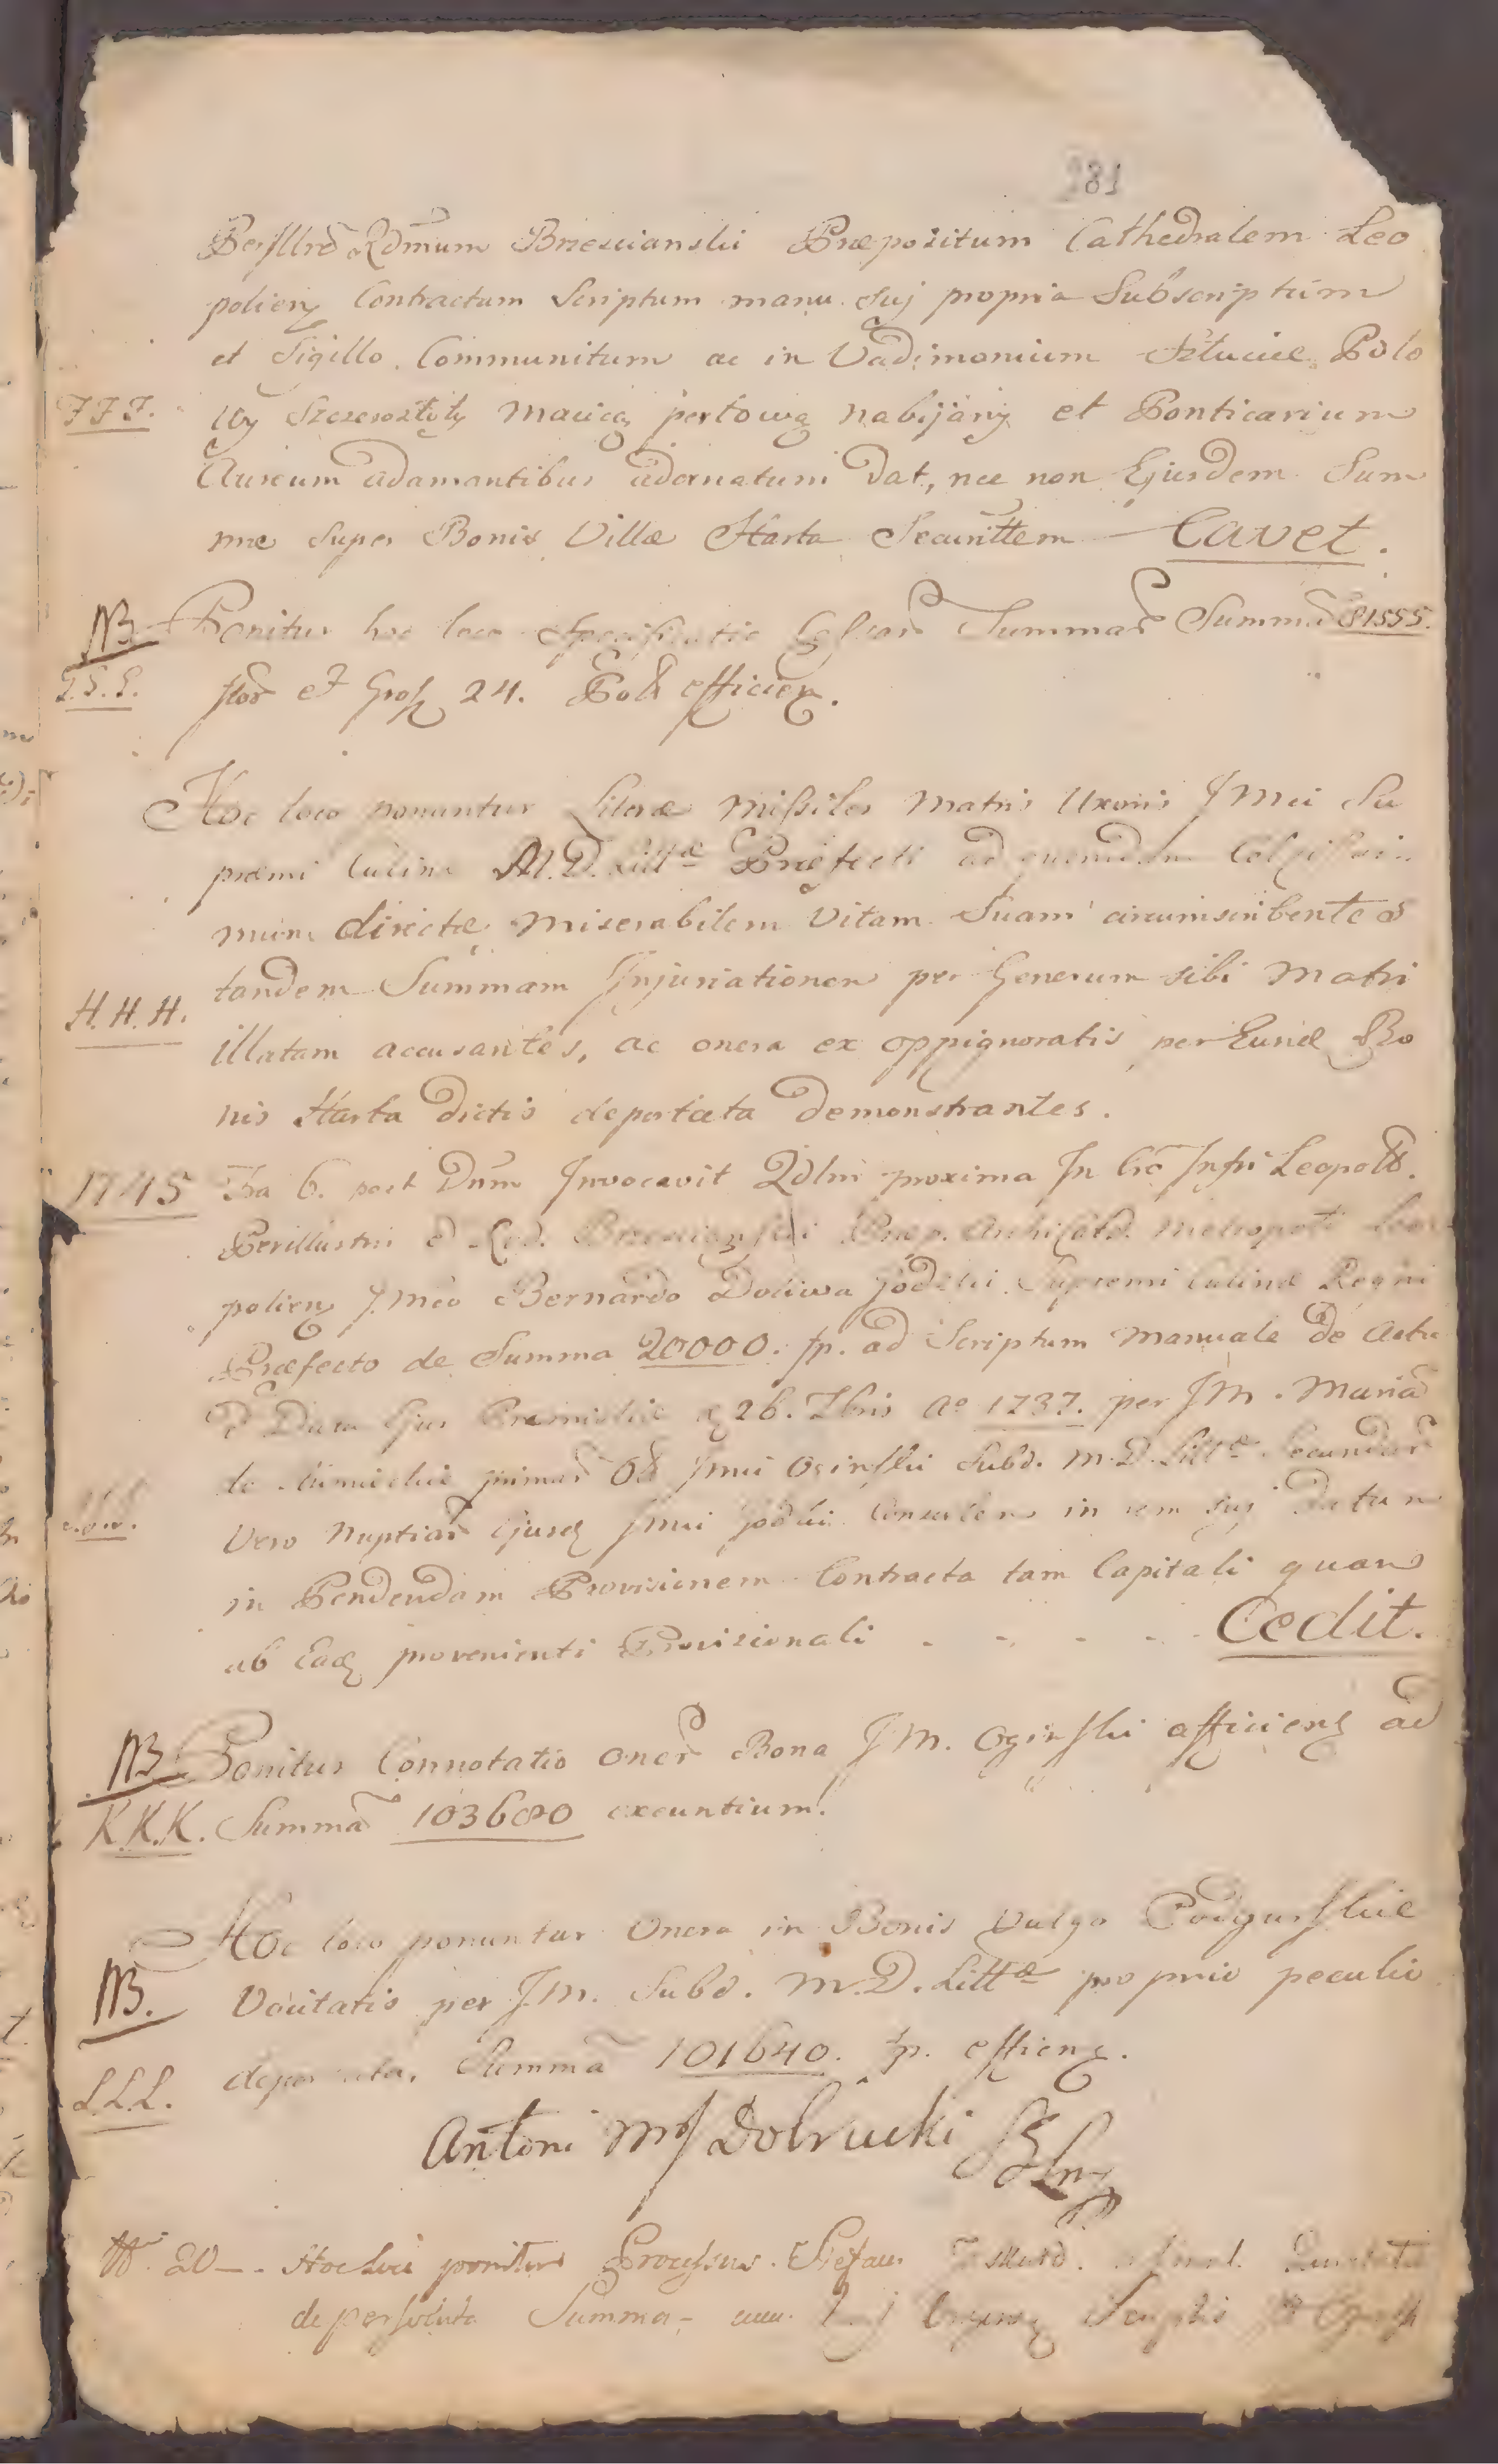 181
Perillrẽ Rdmum Brzescianski Præpositum Cathedralem Leo
polien Contractum Scriptum manu suj propria Subscriptum
et Sigillo Communitum ac in Vadimonium Sztuciec Polo
FFF. wy Szczerozłoty macicą perłową nabijany et Ponticarium
Aureum adamantibus adornatum Dat, nec non Ejusdem Sum
mæ super Bonis Villæ Harta Securittem Cavet.
NB Ponitur hoc loco Specificatio Summar Summã 81555.
G.G.G. flor et Gros 24. Poll efficien.
Hoc loco ponuntur Literæ missiles Matris Uxoris JMci Su
premi Culinæ M.D. Littæ Præfecti ad quemdam
mum directæ, miserabilem Vitam Suam circumscribentes
tandem Summam Injuriationem per Generum sibi Matri
H.H.H. illatam accusantes, ac onera ex oppignoratis per Eund Bo
nis Harta dictis deportata demonstrantes.
1745 Fria 6. post Dnm Invocavit Qdlm proxima In Crõ Infri Leopold.
Perillustri Præp. Archicatd. Metropoli Leo
polien JMco Bernardo Doliwa Jodzki Supremi Culinæ Regni
Præfecto de Summa 20000. fp. ad Scriptum Manuale de Actu
Premisliæ 26. 7bris Ao 1737. per JM. Mariã
de primar Oginski Subd. M.D. Littæ Secundar
Vero Nuptiar ejusd Jmci Jodzki Consortem in rem suj datum
in Pendendam Provisionem Contracta tam Capitali quam
ab Eadq provenienti Provisionali - - - - Cedit.
NB. Ponitur Connotatio oner Bona JM. Oginski afficien ad
K.K.K. Summã 103680 exeuntium.
Hoc loco ponuntur Onera in Bonis Vulgo Podgurskie
NB. Vocitatis per JM. Subd. M.D. Littæ proprio peculio
L.L.L. deportata, Summã 101640. fp. efficien.
Antoni Dobrucki
20 - Hoc loco ponitur Processus.
de persoluta Summa